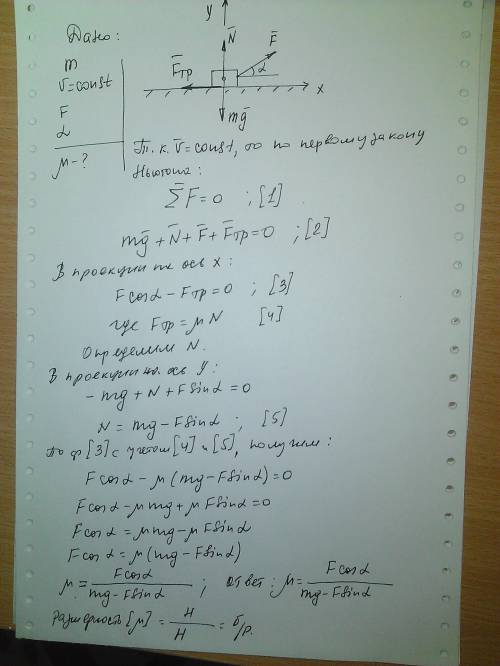 Дано:
m
v=const
F
α
μ-?
y
N̄
F̄
α
F̄тр
x
mḡ
Т.к. v̄=const, то по первому закону
Ньютона:
ΣF̄=0 ; [1]
mḡ+N̄+F̄+F̄тр=0 ; [2]
В проекции на ось x:
Fcosα-Fтр=0 ; [3]
где Fтр=μN [4]
Определим N.
В проекции на ось y:
-mg+N+Fsinα=0
N=mg-Fsinα ; [5]
По ф [3] с учетом [4] и [5], получим:
Fcosα-μ(mg-Fsinα)=0
Fcosα-μmg+μFsinα=0
Fcosα=μmg-μFsinα
Fcosα=μ(mg-Fsinα)
μ=Fcosα/(mg-Fsinα) ; Ответ: μ=Fcosα/(mg-Fsinα)
Размерность [μ]=Н/Н=б/р.